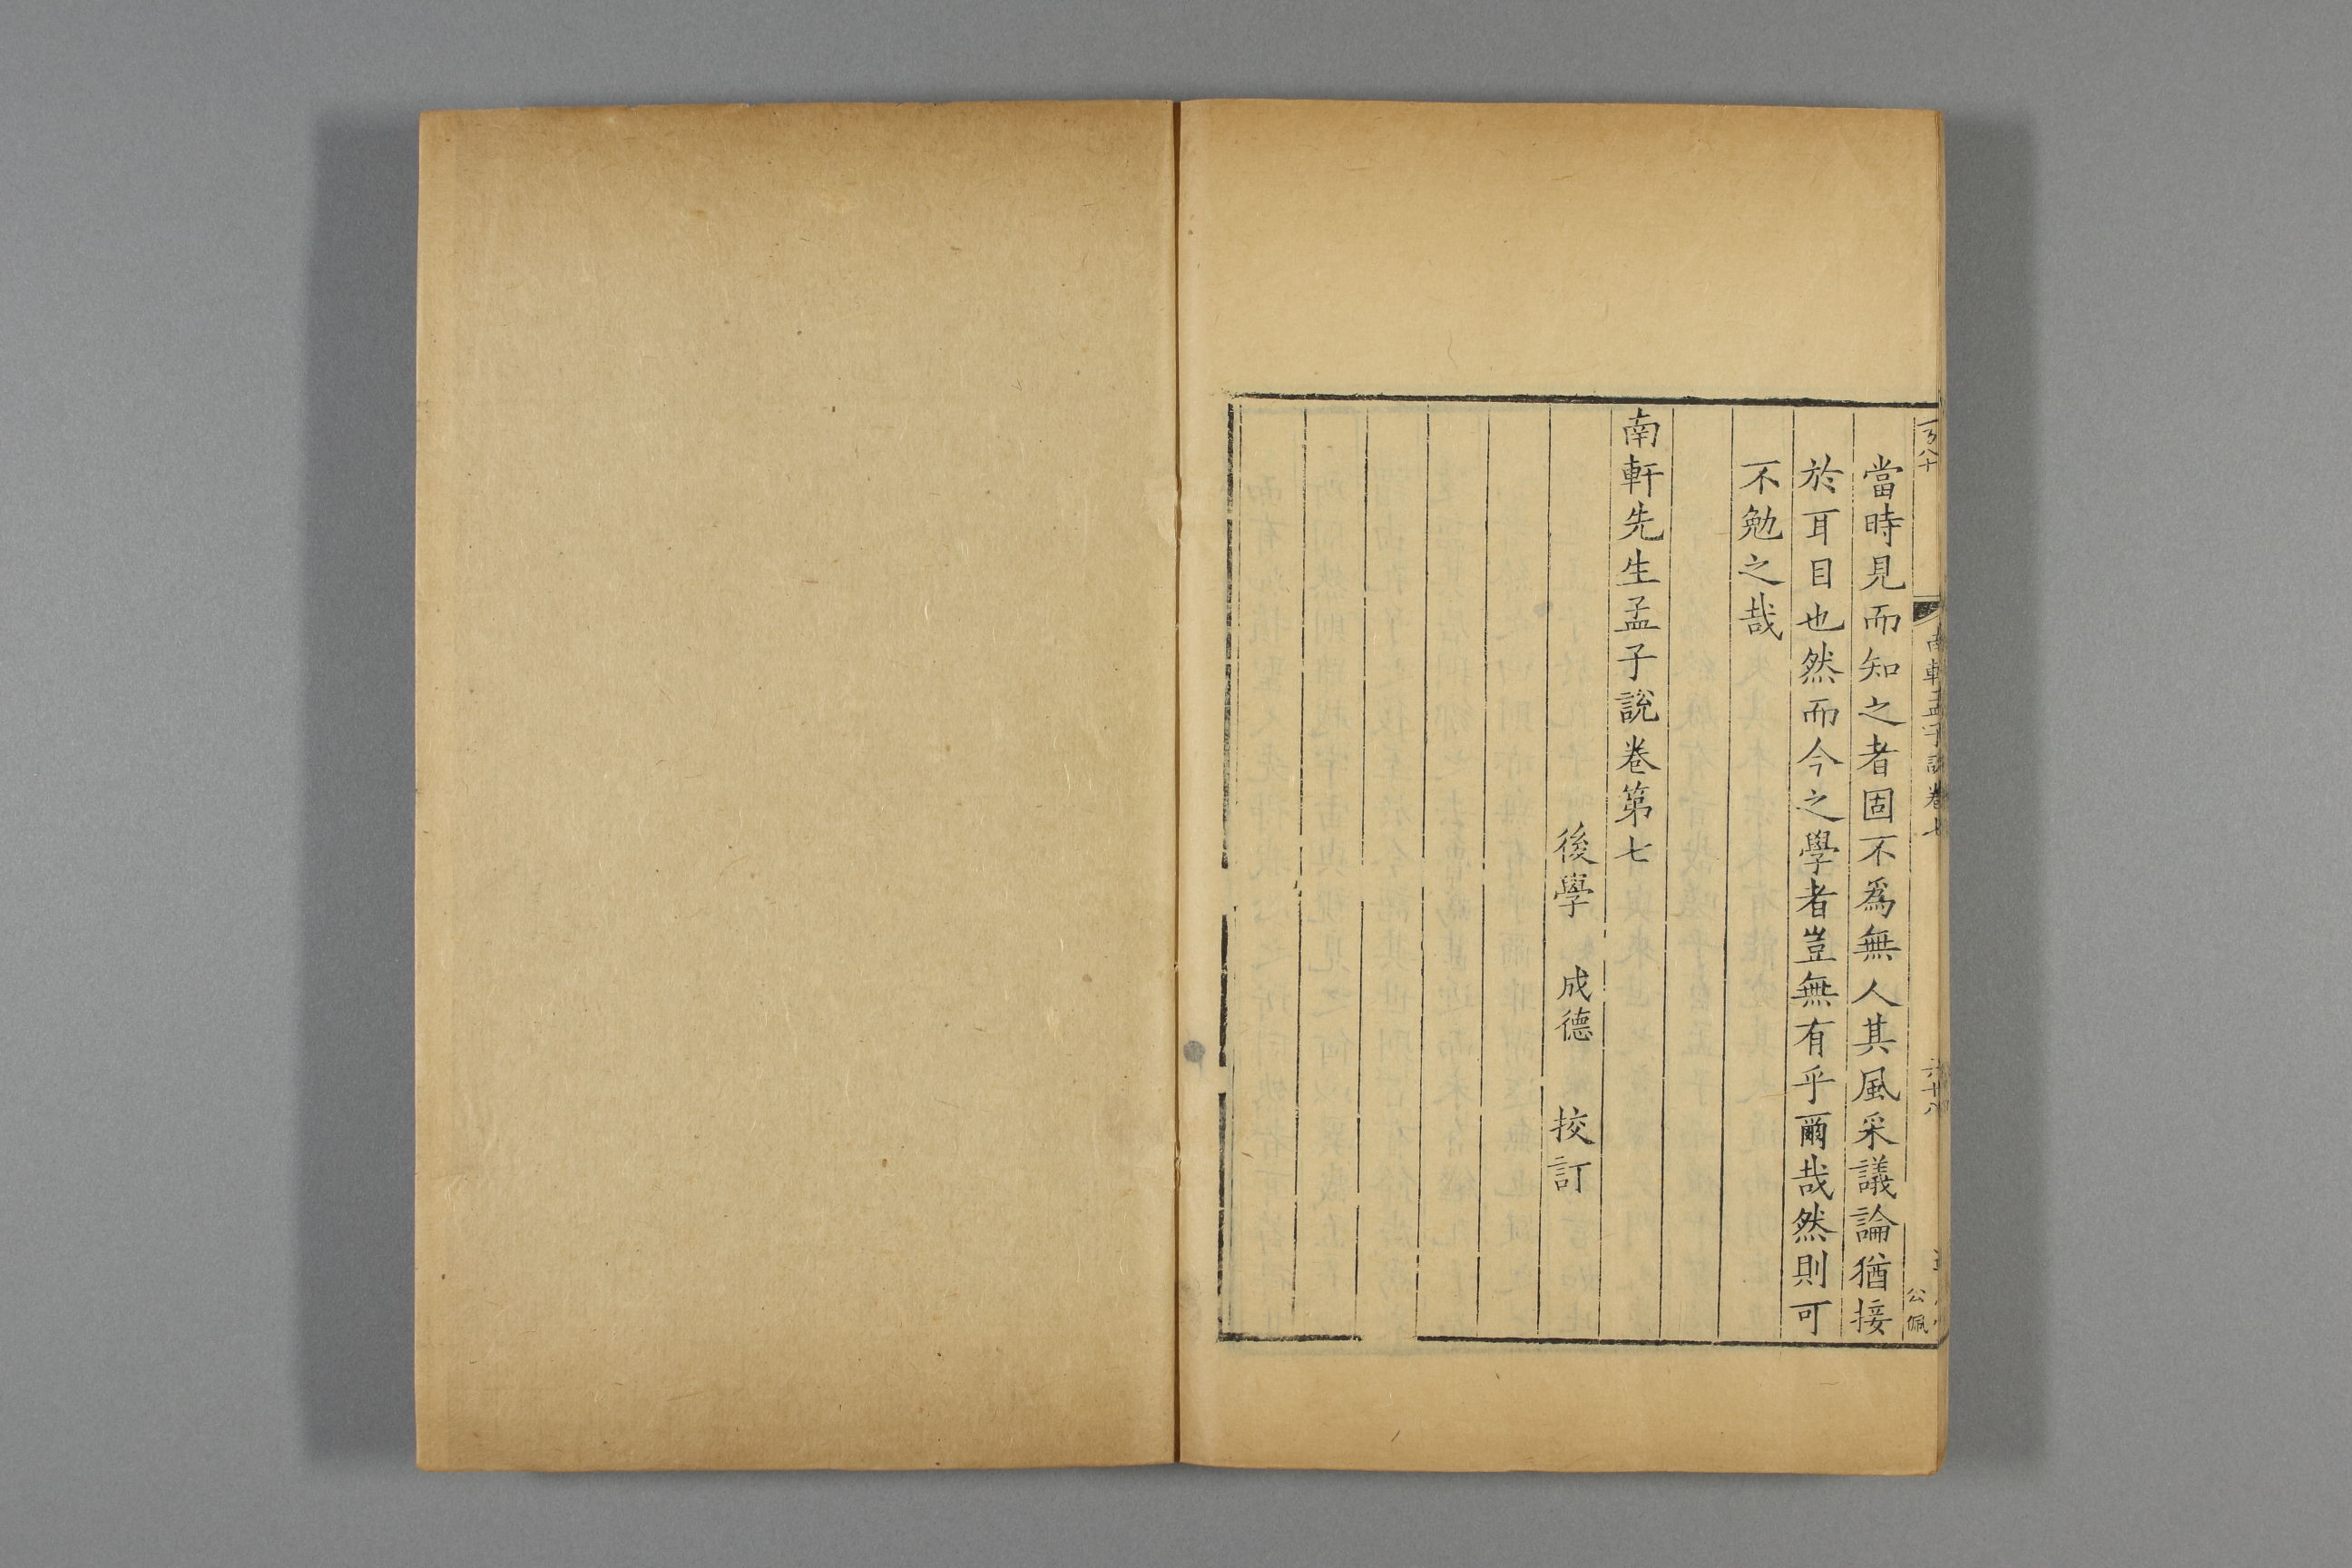 當時見而知之者固不爲無人其風采議論猶接
於耳目也然而今之學者豈無有乎爾哉然則可
不勉之哉
南軒先生孟子說卷第七
後學 成德 挍訂
南軒孟子說卷七
六十八
公佩